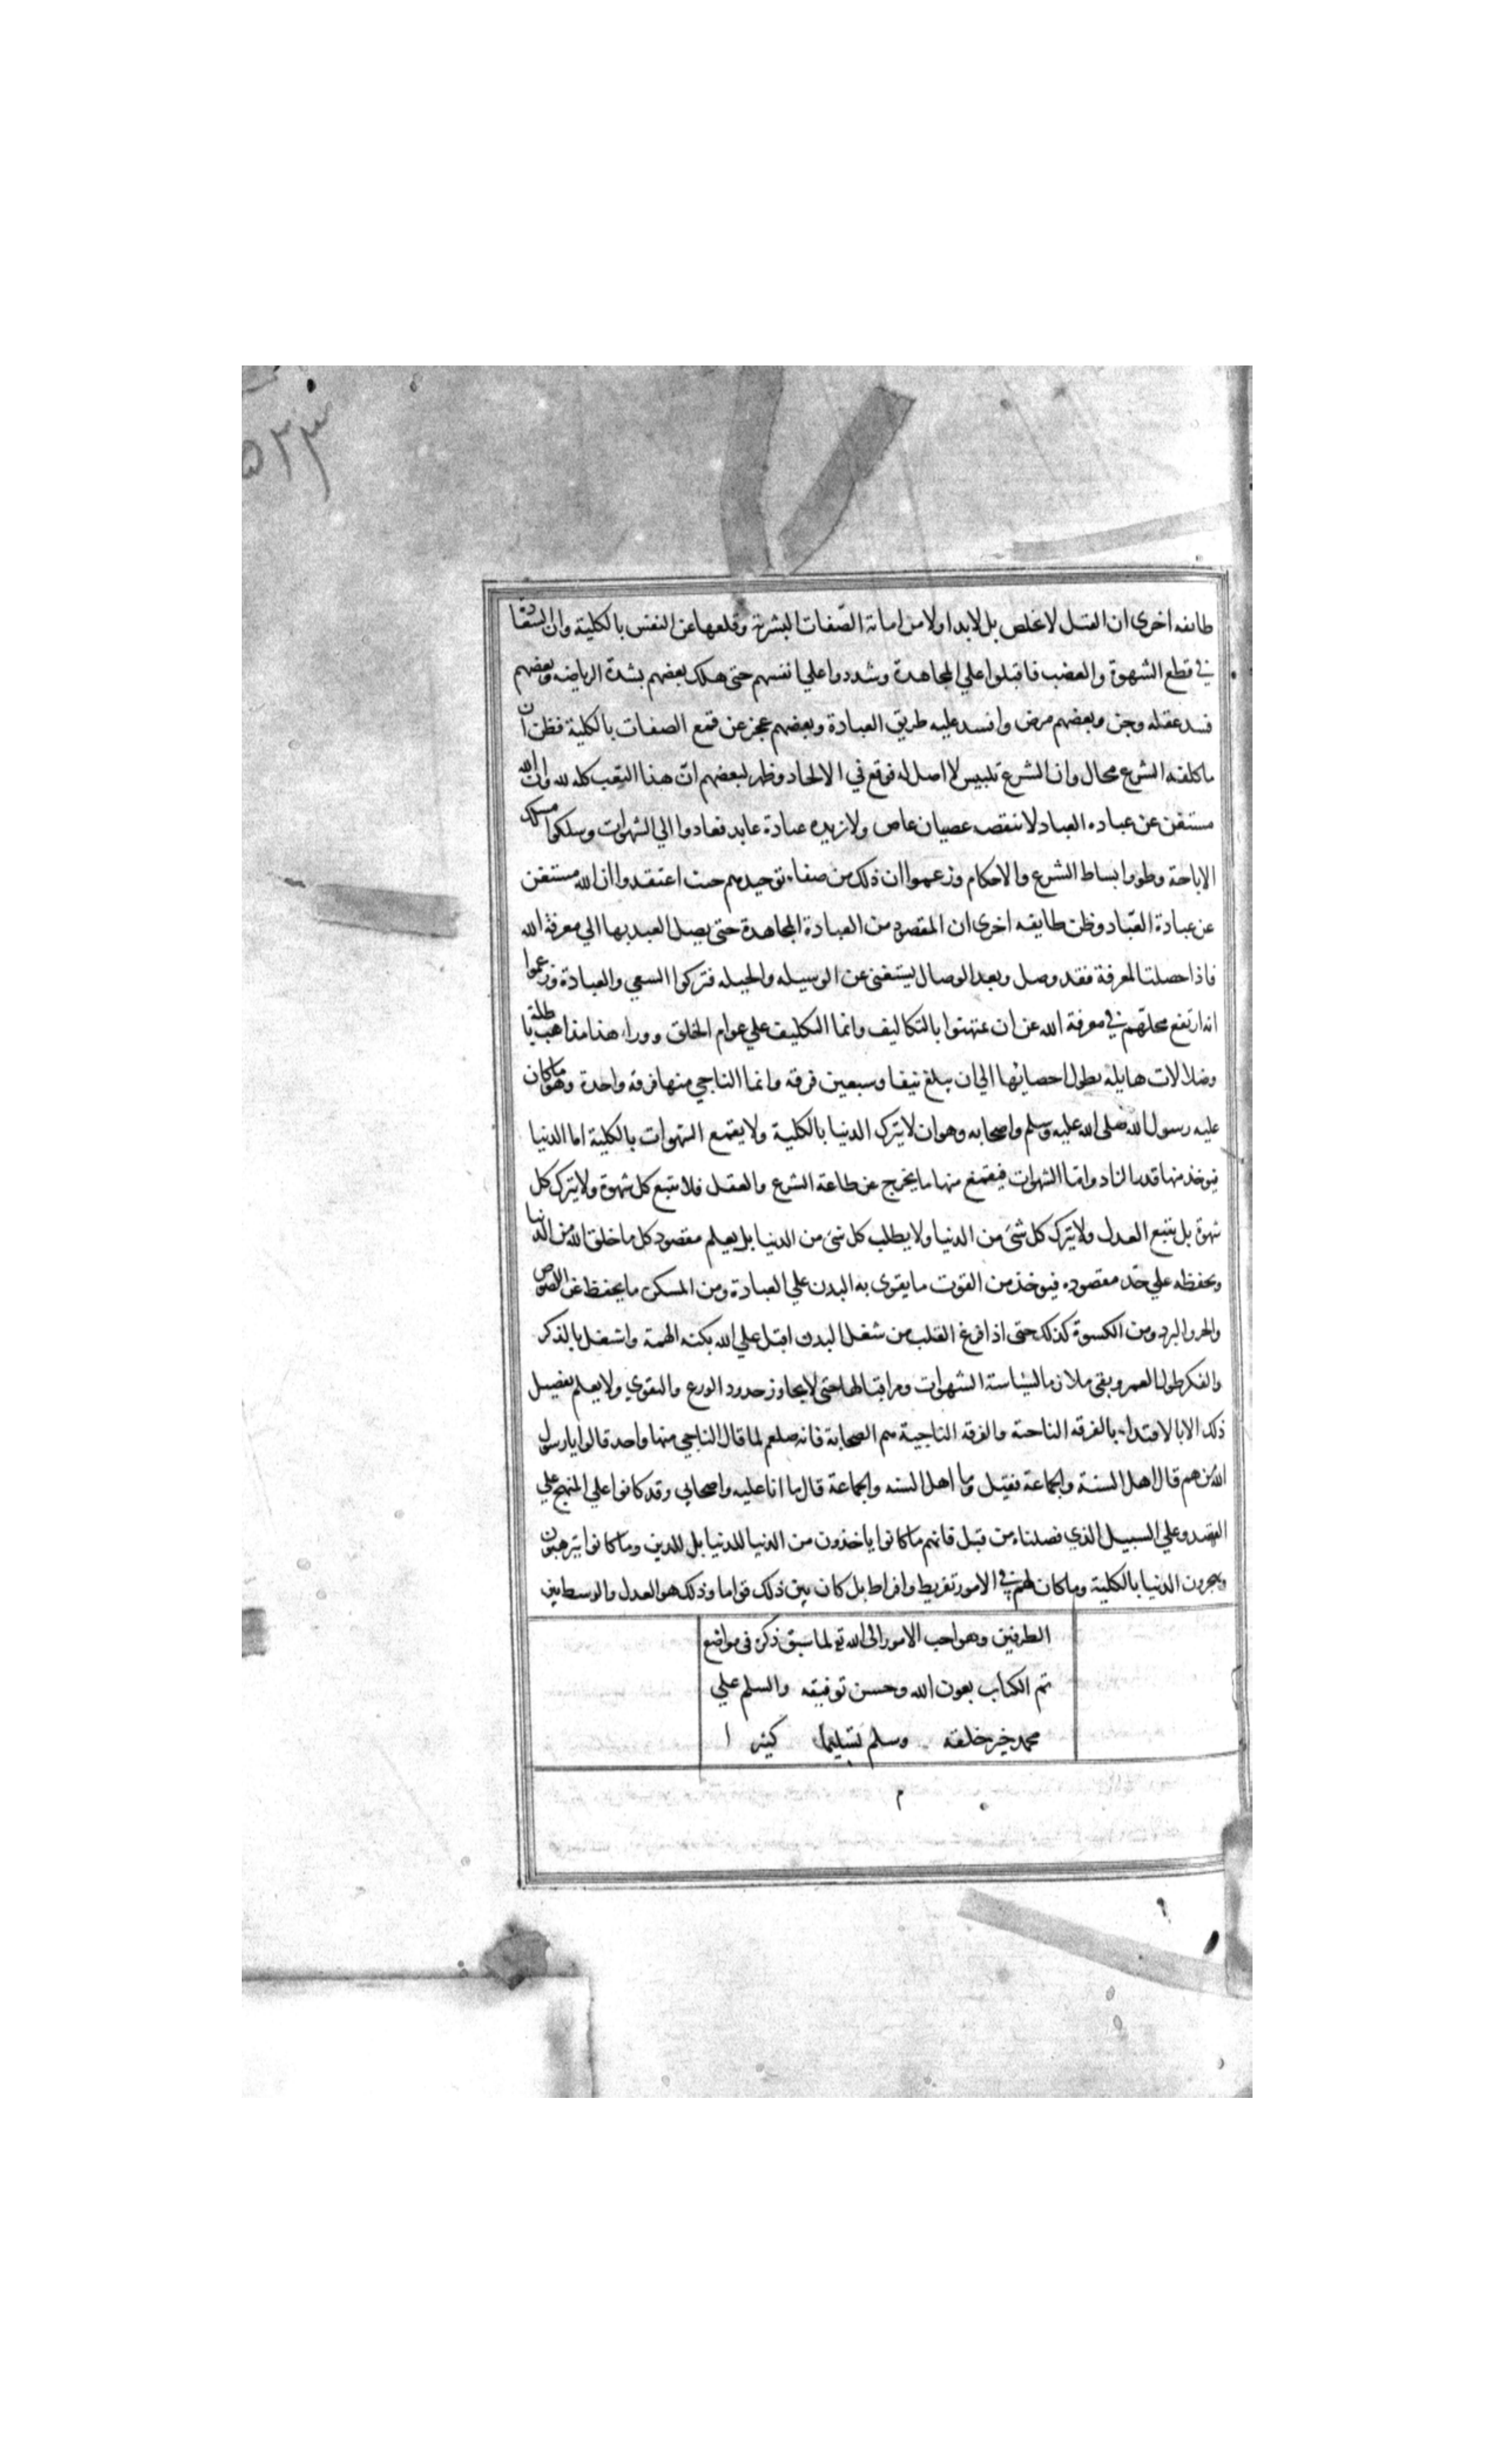 ٥٢٣
طايفه اخرى ان القتل لا يخلص بل لابد اولا من اماتة الصّفات البشرية وقلعها عن النفس بالكلية وان السعادة
في قطع الشهوة والغضب فاقبلوا علي المجاهدة وشددوا علي انفسهم حتى هلك بعضهم بشدة الرياضه وبعضهم
فسد عقله وجن وبعضهم مرض وانسد عليه طريق العبادة وبعضهم عجز عن قمع الصفات بالكلية فظن ان
ما كلفه الشرع محال وان الشرع تلبيس لا اصل له فوقع في الالحاد وظهر لبعضهم انّ هذا التعب كله لله وان الله
مستغن عن عباده العباد لا ينقصه عصيان عاص ولا تزيده عبادة عابد فعادوا الي الشهوات وسلكوا مسلك
الاباحة وطووا بساط الشرع والاحكام وزعموا ان ذلك من صفاء توحيدهم حيث اعتقدوا ان الله مستغن
عن عبادة العبّاد وظن طايفه اخرى ان المقصود من العبادة المجاهدة حتى يصل العبد بها الي معرفة الله
فاذا حصلت المعرفة فقد وصل وبعد الوصال يستغنى عن الوسيله والحيله فتركوا السعي والعبادة وزعموا
انه ارتفع محلهم في معرفة الله عن ان يمتهنوا بالتكاليف وانما التكليف علي عوام الخلق ووراء هذا مذاهب باطلة
وضلالات هايلة يطول احصائها الي ان يبلغ نيفا وسبعين فرقه وانما الناجي منها فرقه واحدة وهو ما كان
عليه رسول الله صلى الله عليه وسلم واصحابه وهو ان لا يترك الدنيا بالكلية ولا يقمع الشهوات بالكلية اما الدنيا
فيوخذ منها قدر الزاد وامّا الشهوات فيقمع منها ما يخرج عن طاعة الشرع والعقل فلا يتبع كل شهوة ولا يترك كل
شهوة بل يتبع العدل ولا يترك كل شئ من الدنيا ولا يطلب كل شئ من الدنيا بل يعلم مقصود كل ما خلق الله من الدنيا
ويحفظه علي حدّ مقصوده فيوخذ من القوت ما يقوى به البدن علي العبادة ومن المسكن ما يحفظ عن اللصوص
والحر والبرد ومن الكسوة كذلك حتى اذا فرغ القلب من شغل البدن اقبل علي الله بكنه الهمة واشغل بالذكر
والفكر طول العمر وبقى ملازما لسياسة الشهوات ومراقبا لها حتى لا يجاوز حدود الورع والتقوي ولا يعلم تفصيل
ذلك الا بالاقتداء بالفرقه الناجية والفرقه الناجية هم الصحابة فانه صلعم لما قال الناجي منها واحد قالوا يا رسول
الله من هم قال اهل السنة والجماعة فقيل وما اهل السنه والجماعة قال ما انا عليه واصحابي وقد كانوا علي المنهج علي
القصد وعلي السبيل الذي فصلناه من قبل فانهم ما كانوا ياخذون من الدنيا للدنيا بل للدين وما كانوا يترهبون
ويهجرون الدنيا بالكلية وما كان لهم في الامور تفريط وافراط بل كان بين ذلك قواما وذلك هو العدل والوسط بين
الطرفين وهو احب الامور الى الله تع لما سبق ذكره فى مواضع
تم الكتاب بعون الله وحسن توفيقه والسلم علي
محمد خير خلقه وسلم تسليما كثيرا
م